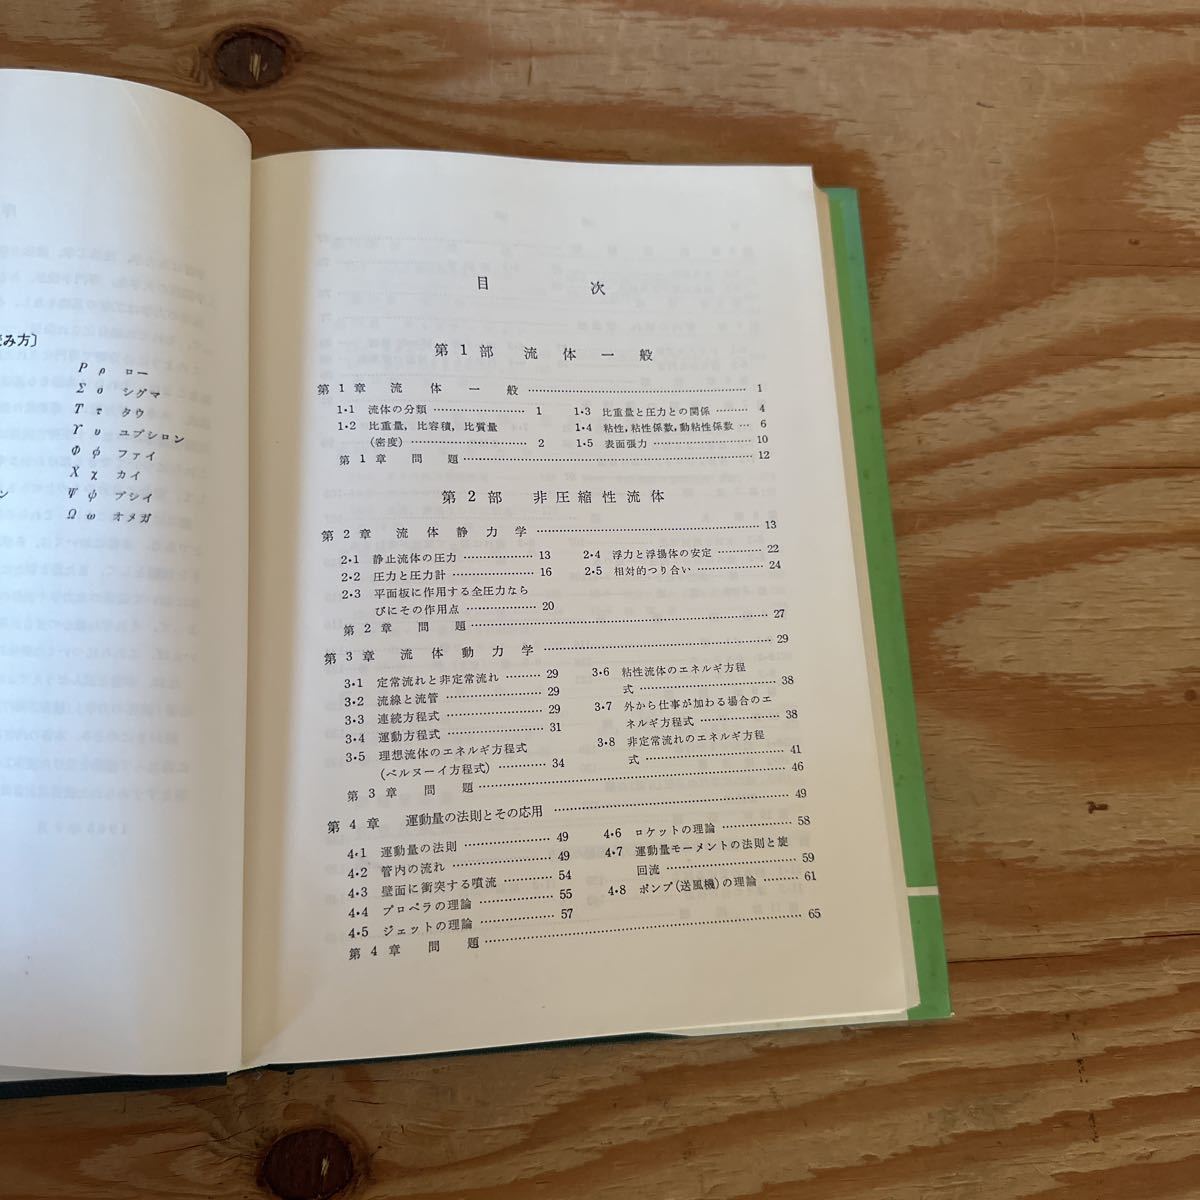 み方〕
Ρ ρ ロー
Σ σ シグマ
Τ τ タウ
ϒ υ ユプシロン
Φ φ ファイ
Χ χ カイ
Ψ ψ プシイ
Ω ω オメガ
ン
目 次
第1部 流体一般
第1章 流体一般 …… 1
1・1 流体の分類 …… 1
1・2 比重量, 比容積, 比質量
(密度) …… 2
1・3 比重量と圧力との関係 …… 4
1・4 粘性, 粘性係数, 動粘性係数 … 6
1・5 表面張力 …… 10
第1章 問題 …… 12
第2部 非圧縮性流体
第2章 流体静力学 …… 13
2・1 静止流体の圧力 …… 13
2・2 圧力と圧力計 …… 16
2・3 平面板に作用する全圧力なら
びにその作用点 …… 20
2・4 浮力と浮揚体の安定 …… 22
2・5 相対的つり合い …… 24
第2章 問題 …… 27
第3章 流体動力学 …… 29
3・1 定常流れと非定常流れ …… 29
3・2 流線と流管 …… 29
3・3 連続方程式 …… 29
3・4 運動方程式 …… 31
3・5 理想流体のエネルギ方程式
(ベルヌーイ方程式) …… 34
3・6 粘性流体のエネルギ方程
式 …… 38
3・7 外から仕事が加わる場合のエ
ネルギ方程式 …… 38
3・8 非定常流れのエネルギ方程
式 …… 41
第3章 問題 …… 46
第4章 運動量の法則とその応用 …… 49
4・1 運動量の法則 …… 49
4・2 管内の流れ …… 49
4・3 壁面に衝突する噴流 …… 54
4・4 プロペラの理論 …… 55
4・5 ジェットの理論 …… 57
4・6 ロケットの理論 …… 58
4・7 運動量モーメントの法則と旋
回流 …… 59
4・8 ポンプ(送風機)の理論 …… 61
第4章 問題 …… 65